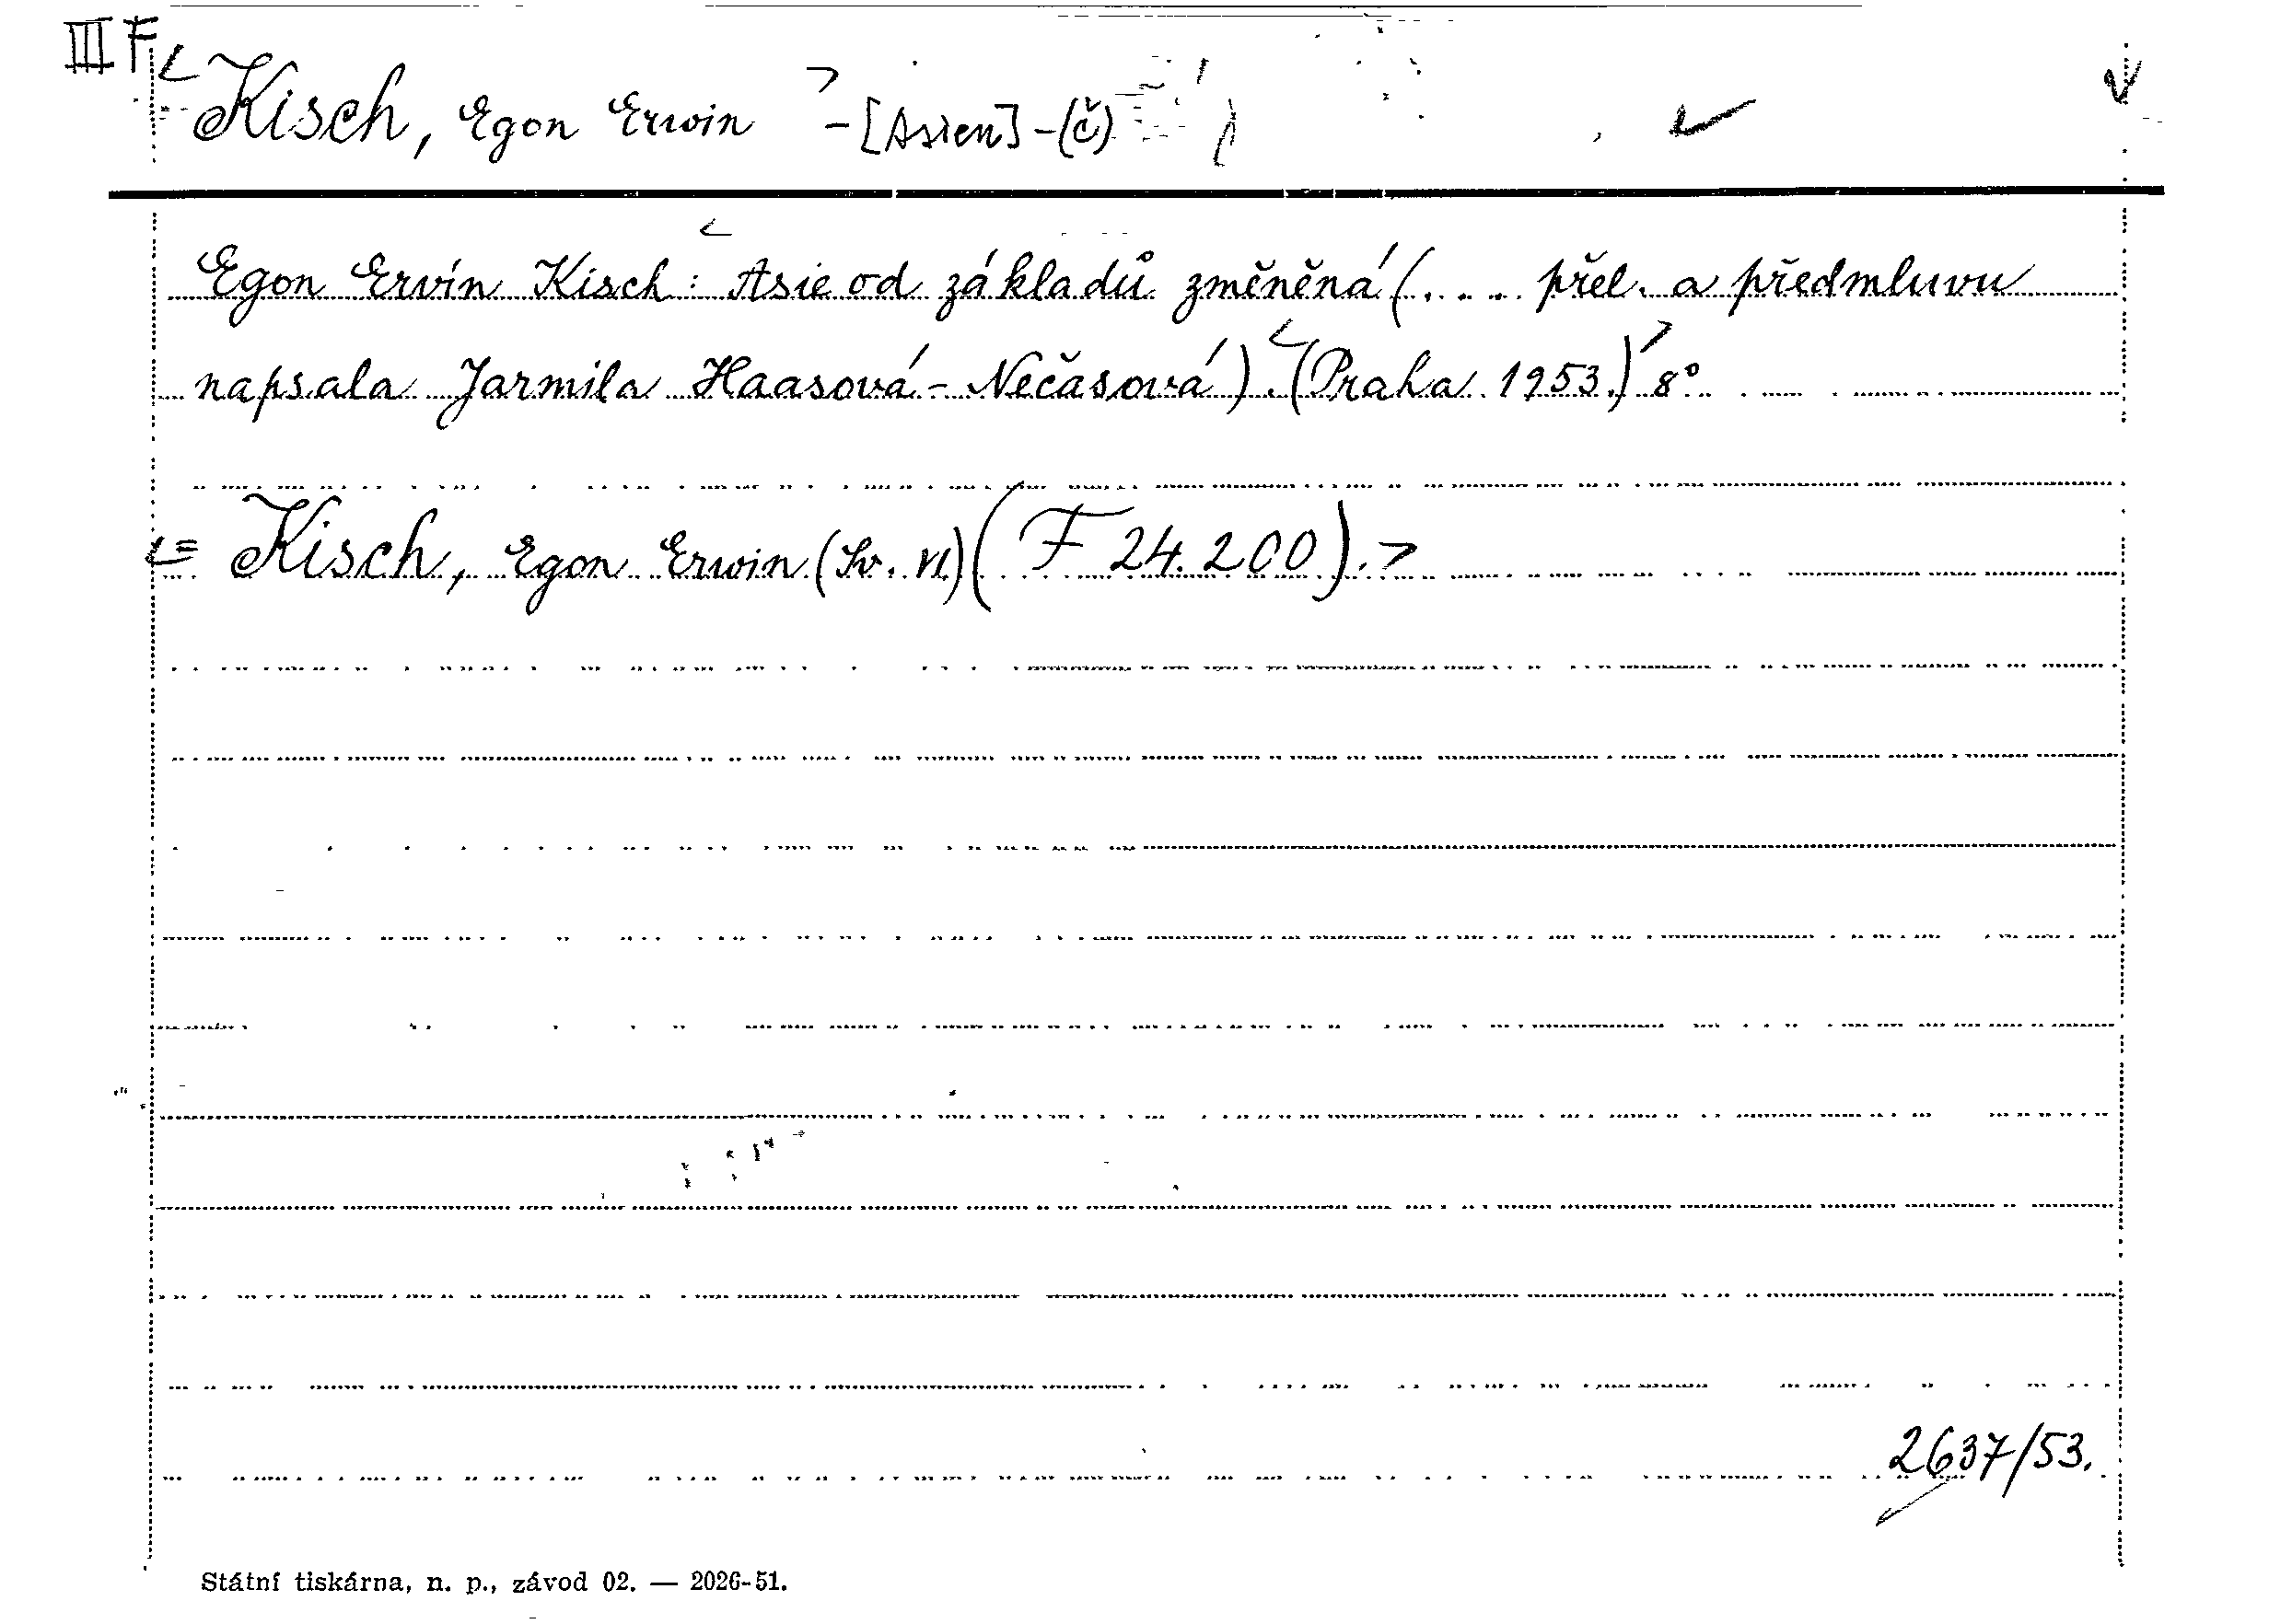 III F
Kisch, Egon Erwin - [Asien] - (č)
Egon Ervín Kisch: Asie od základů změněná (.... přel. a předmluvu
napsala Jarmila Haasová-Nečasová). (Praha 1953.) 8°.
= Kisch, Egon Erwin (Sv. VI.) (F 24.200).
2637/53.
Státní tiskárna, n. p., závod 02. — 2026-51.